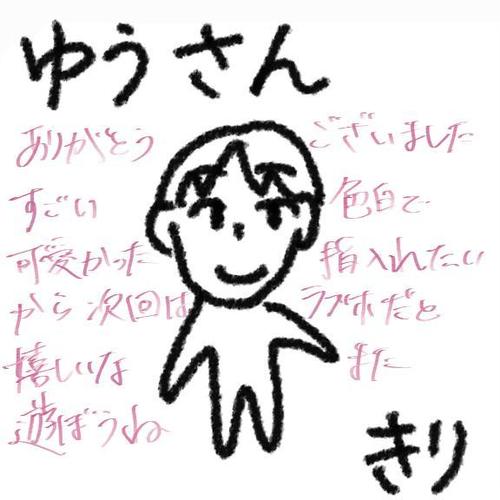 ゆうさん
ありがとう ございました
すごい 色白で
可愛かった 指入れたい
から次回は ラブホだと
嬉しいな また
遊ぼうね
きり